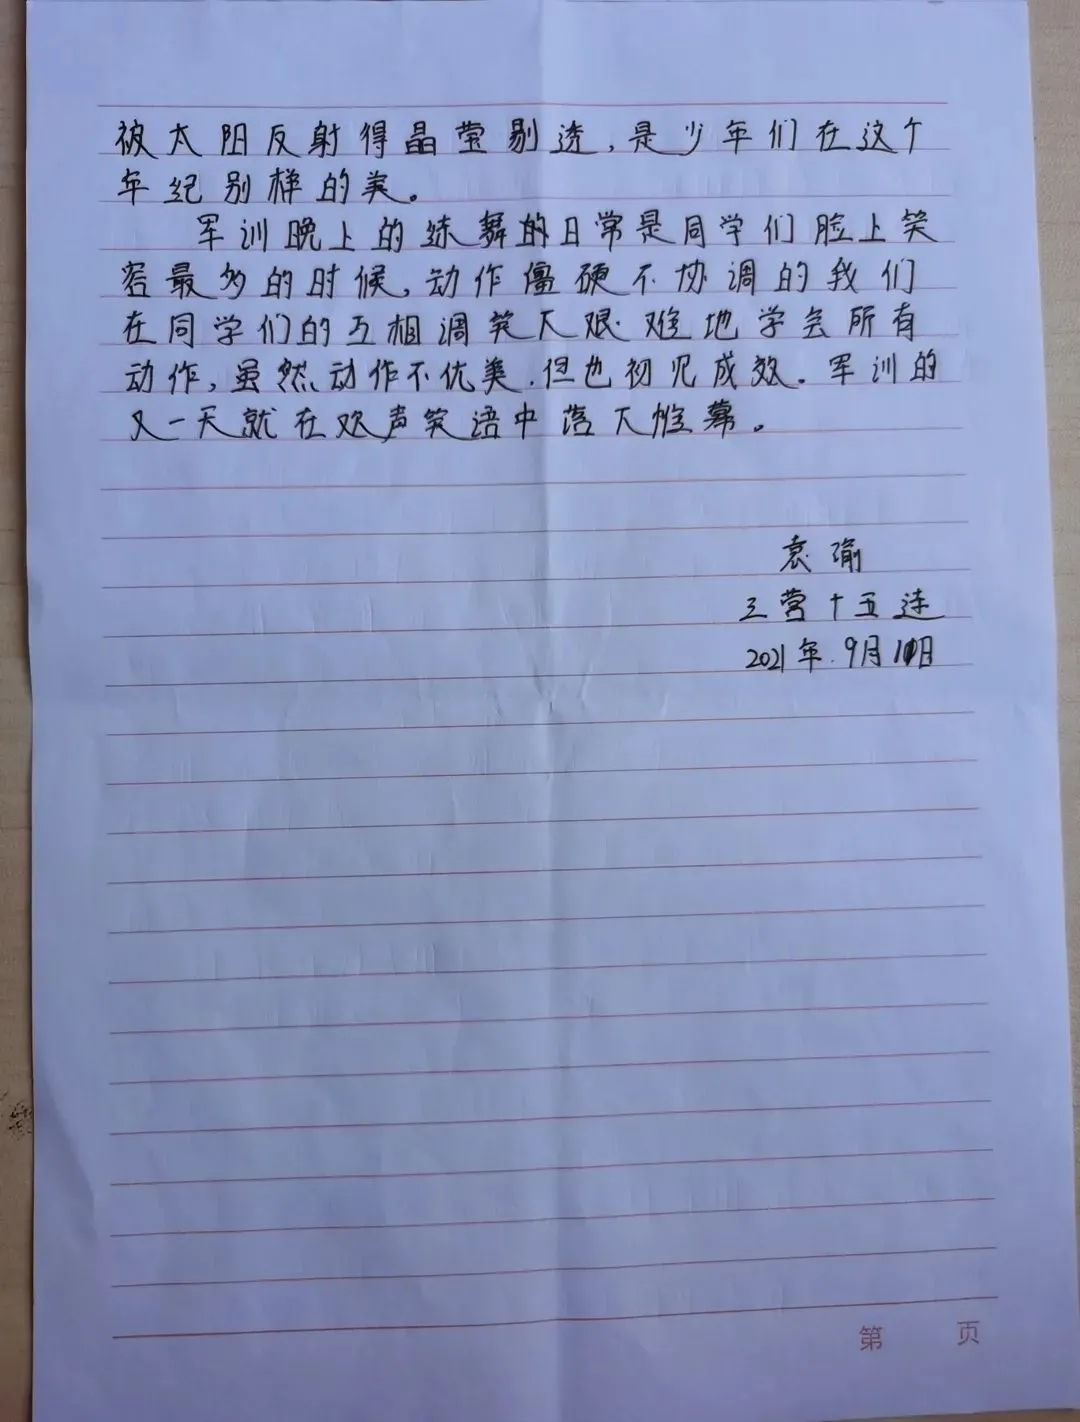 被太阳反射得晶莹剔透，是少年们在这个
年纪别样的美。
军训晚上的练舞的日常是同学们脸上笑
容最多的时候，动作僵硬不协调的我们
在同学们的互相调笑下艰难地学会所有
动作，虽然动作不优美，但也初见成效。军训的
又一天就在欢声笑语中落下帷幕。
袁瑜
三营十五连
2021年9月11日
第 页